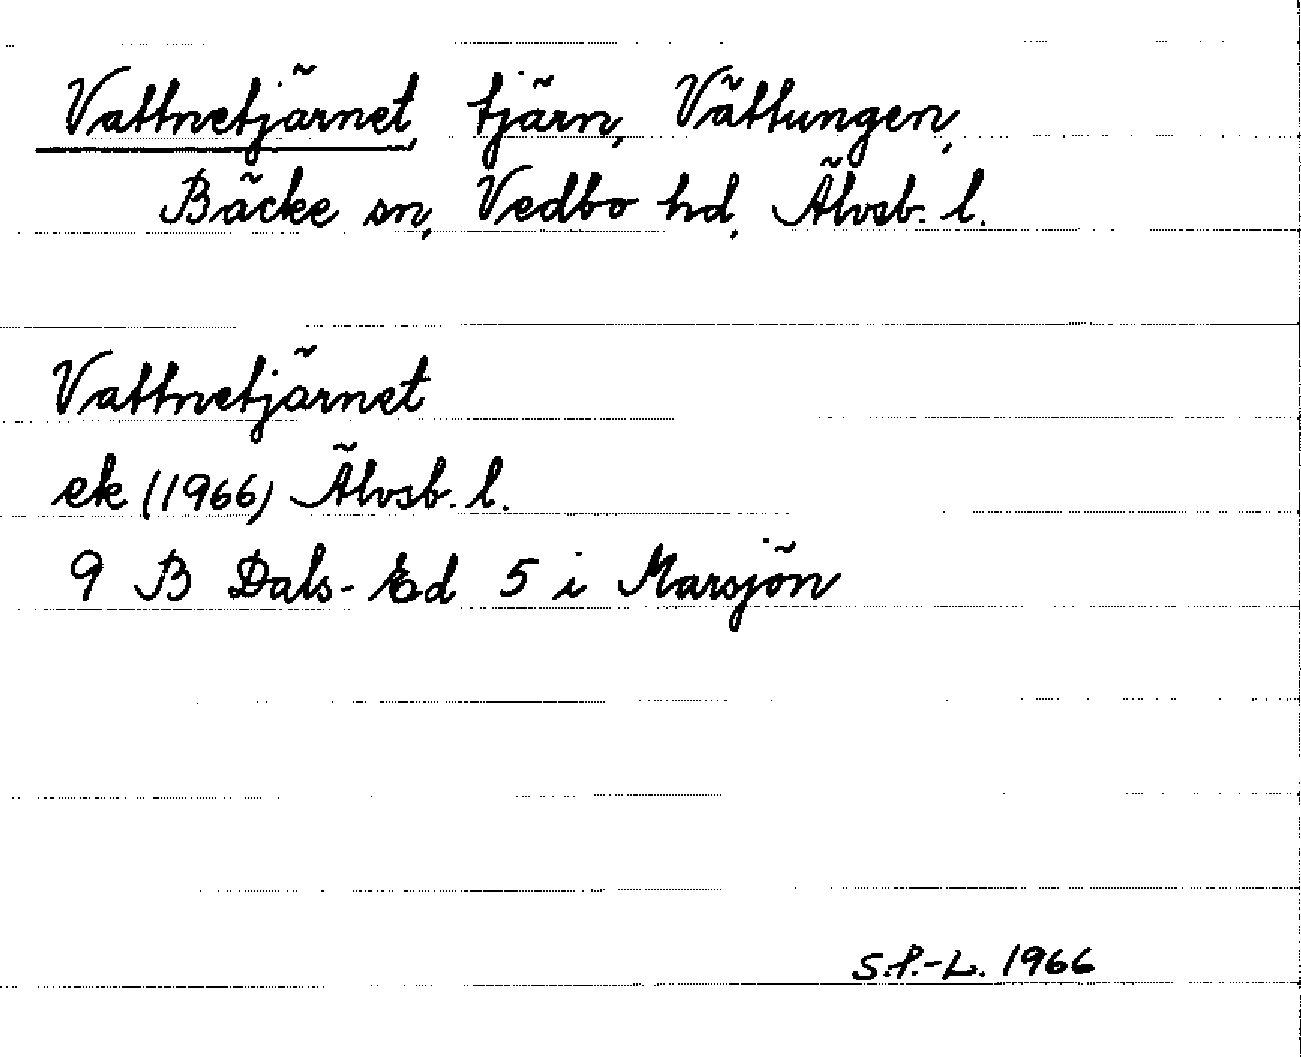 Vattnetjärnet, tjärn, Vättungen,
Bäcke sn, Vedbo hd, Älvsb. l.
Vattnetjärnet
ek (1966) Älvsb. l.
9 B Dals-Ed 5 i Marsjön
S.P.-L. 1966